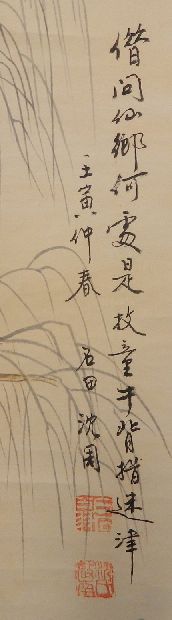 借問仙鄉何處是牧童牛背指迷津
壬寅仲春
石田沈周